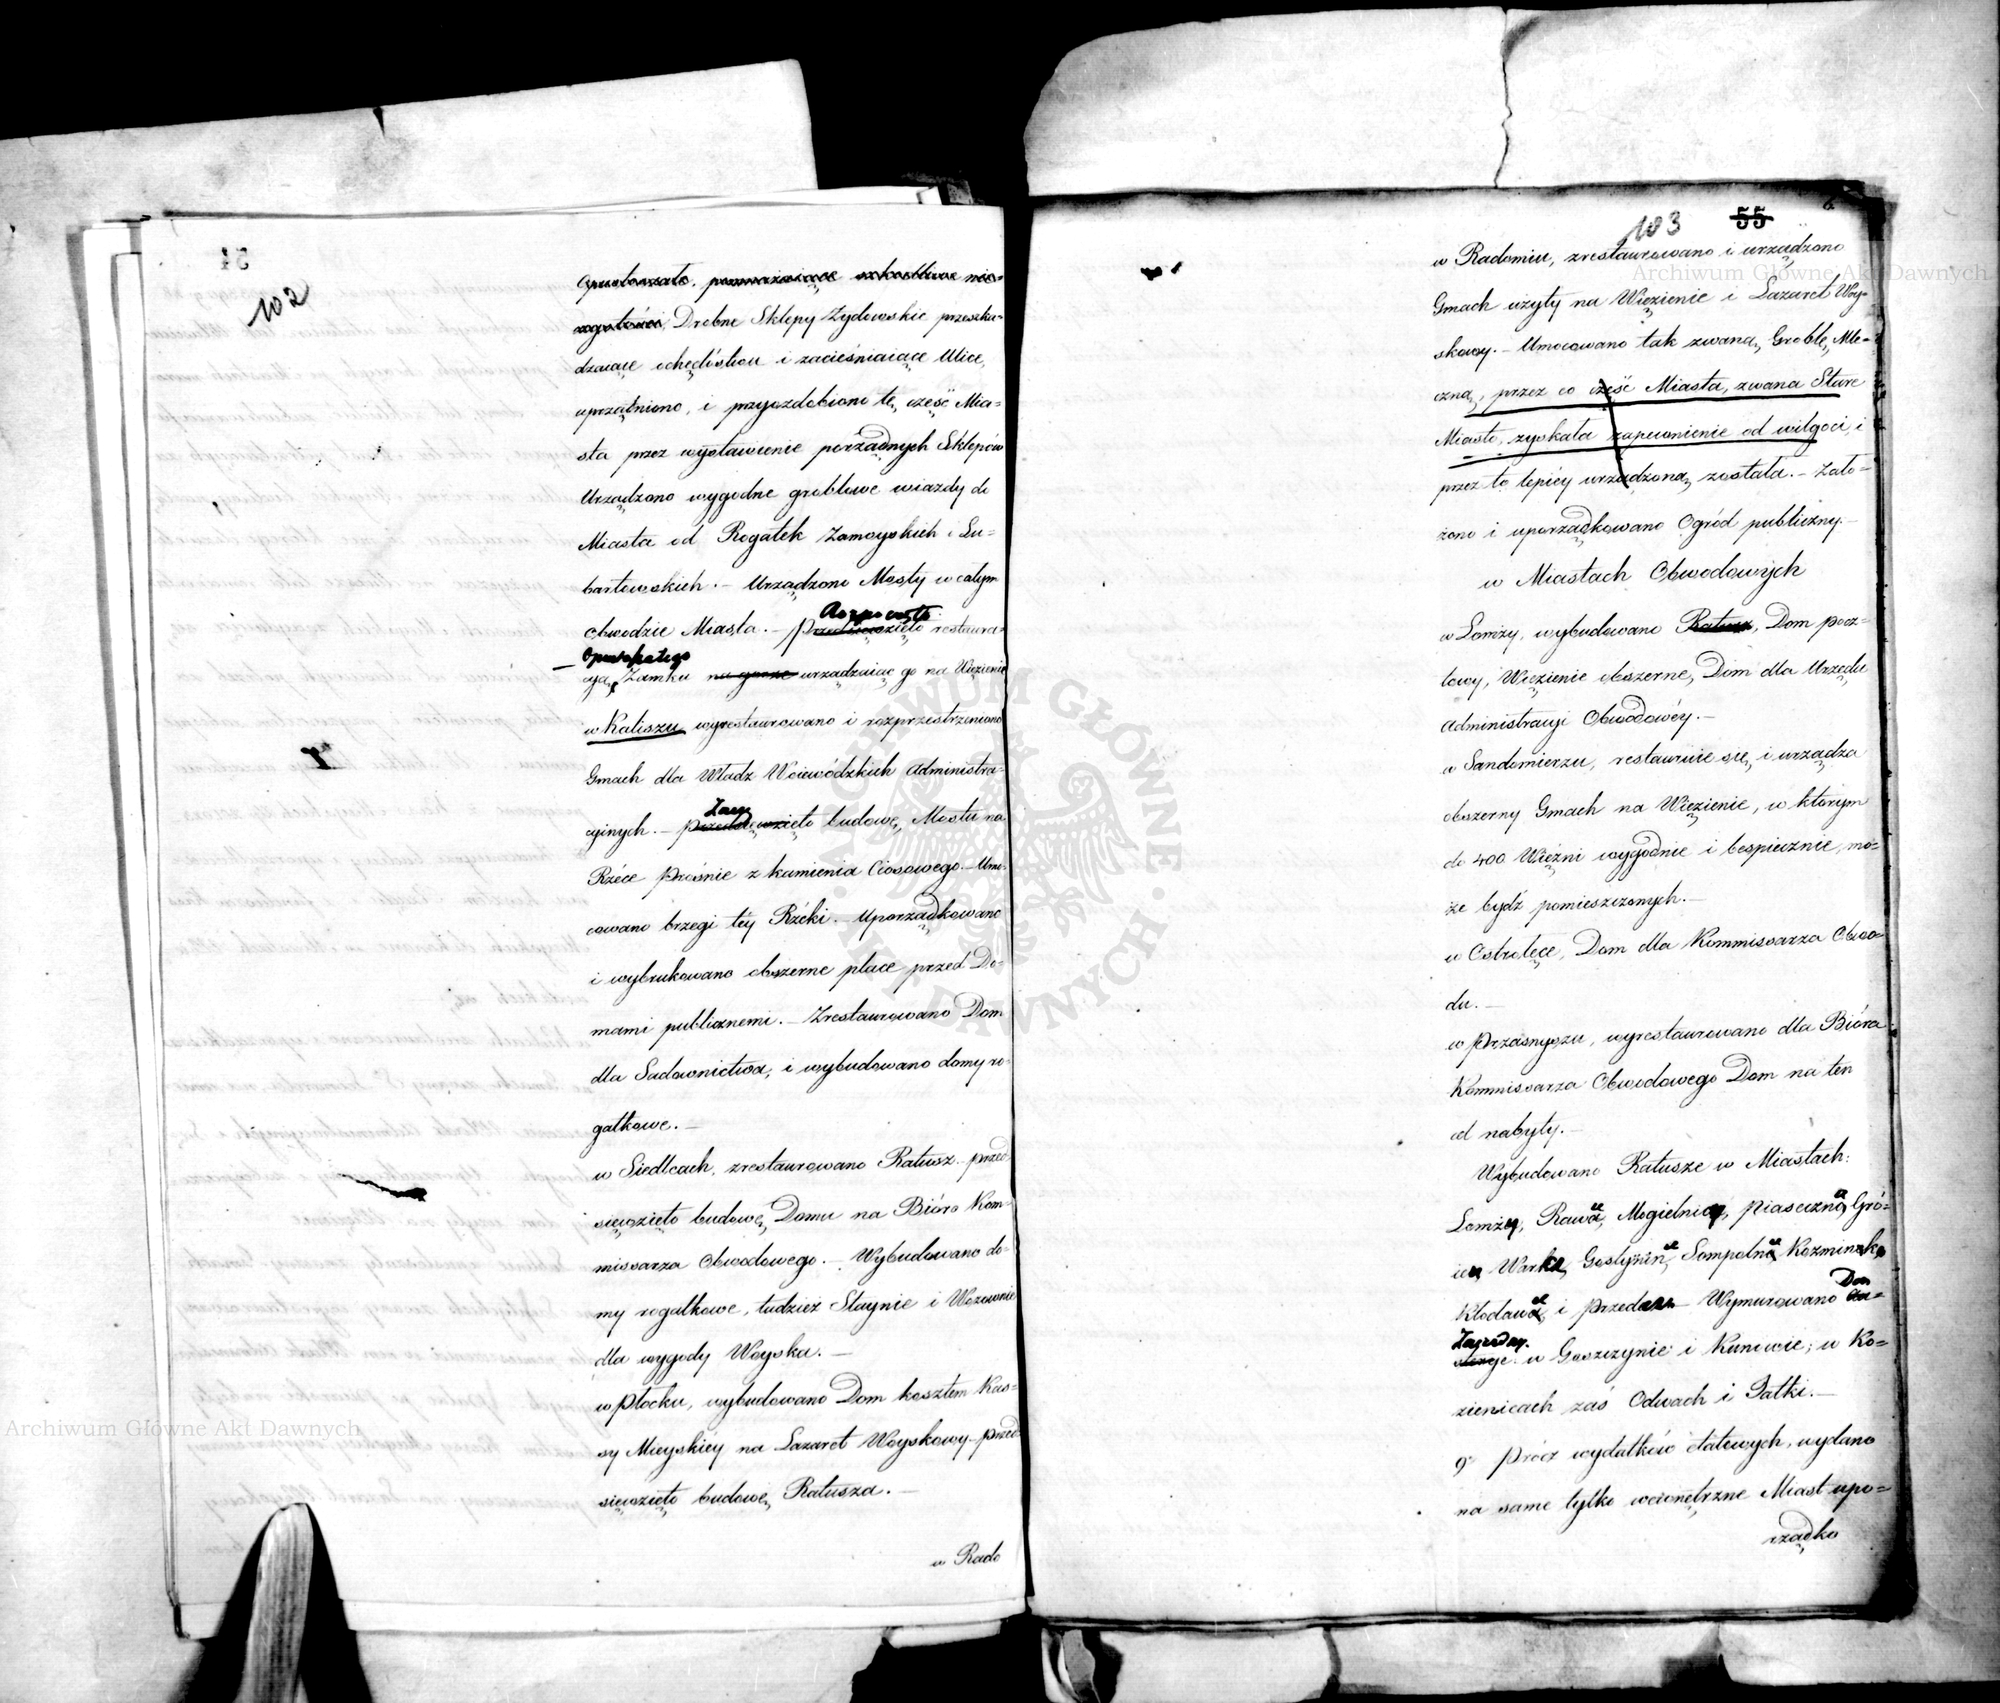 102
~~opustoszałe, pomnażaiące szkodliwe nie=~~
~~czystości,~~ Drobne Sklepy Żydowskie przeszka=
dzaiące ochędóstwu i zacieśniaiące Ulice,
uprzątniono, i przyozdobiono tę część Mia=
sta przez wystawienie porządnych Sklepów
Urządzono wygodne groblowe wiazdy do
Miasta od Rogatek Zamoyskich i Lu=
bartowskich. — Urządzono Mosty w całym
obwodzie Miasta. — ~~Przedsięwzięto~~ Rozpoczęto restaura=
cyą Opustoszałego Zamku ~~na gorze~~ urządzaiąc go na Więzienie
w Kaliszu wyrestaurowano i rozprzestrzeniono
Gmach dla Władz Woiewódzkich Administra=
cyinych. — ~~Przedsięwzięto~~ budowę Mostu na
Rzéce Prośnie z kamienia Ciosowego. — Umo=
cowano brzegi téy Rzéki. — Uporządkowano
i wybrukowano obszerne place przed Do=
mami publicznemi. — Zrestaurowano Dom
dla Sadownictwa, i wybudowano domy ro=
gatkowe. —
w Siedlcach, zrestaurowano Ratusz — przed
sięwzięto budowę Domu na Bióro Kom=
missarza Obwodowego. — Wybudowano do=
my rogatkowe, tudzież Staynie i Wozownie
dla wygody Woyska. —
w Płocku, wybudowano Dom kosztem Kas=
sy Mieyskiéy na Lazaret Woyskowy — przed
sięwzięto budowę Ratusza. —
w Rado
103 ~~55~~
w Radomiu, zrestaurowano i urządzono
Gmach użyty na Więzienie i Lazaret Woy=
skowy. — Umocowano tak zwaną Groblę Mle=
czną, przez co część Miasta, zwana Stare
Miasto, zyskała zapewnienie od wilgoci, i
przez to lepiéy urządzoną została. — Zało=
żono i uporządkowano Ogród publiczny. —
w Miastach Obwodowych
w Łomży, wybudowano ~~Ratusz~~, Dom pocz=
towy, Więzienie obszerne, Dom dla Urzędu
Administracyi Obwodowéy. —
w Sandomierzu, restauruie się, i urządza
obszerny Gmach na Więzienie, w którym
do 400 Więźni wygodnie i bespiecznie, mo=
że bydź pomieszczonych. —
w Ostrołęce, Dom dla Kommissarza Obwo=
du. —
w Przasnyszu, wyrestaurowano dla Bióra
Kommissarza Obwodowego Dom na ten
cel nabyty. —
Wybudowano Ratusze w Miastach:
Łomży, Rawie, Mogielnicy, Piasecznie, Gró=
icu, Warka, Gostyninie, Sompolnie, Kozminek,
Kłodawie, i Przedecz — Wymurowano Dom ~~Au=~~
Zajezdny. ~~sterye~~ w Goszczynie i Kunowie; w Ko=
zienicach zaś Odwach i Jatki. —
9o Prócz wydatków etatowych, wydano
na same tylko wewnętrzne Miast upo=
rządko
Archiwum Główne Akt Dawnych
Archiwum Główne Akt Dawnych
ARCHIWUM GŁÓWNE AKT DAWNYCH